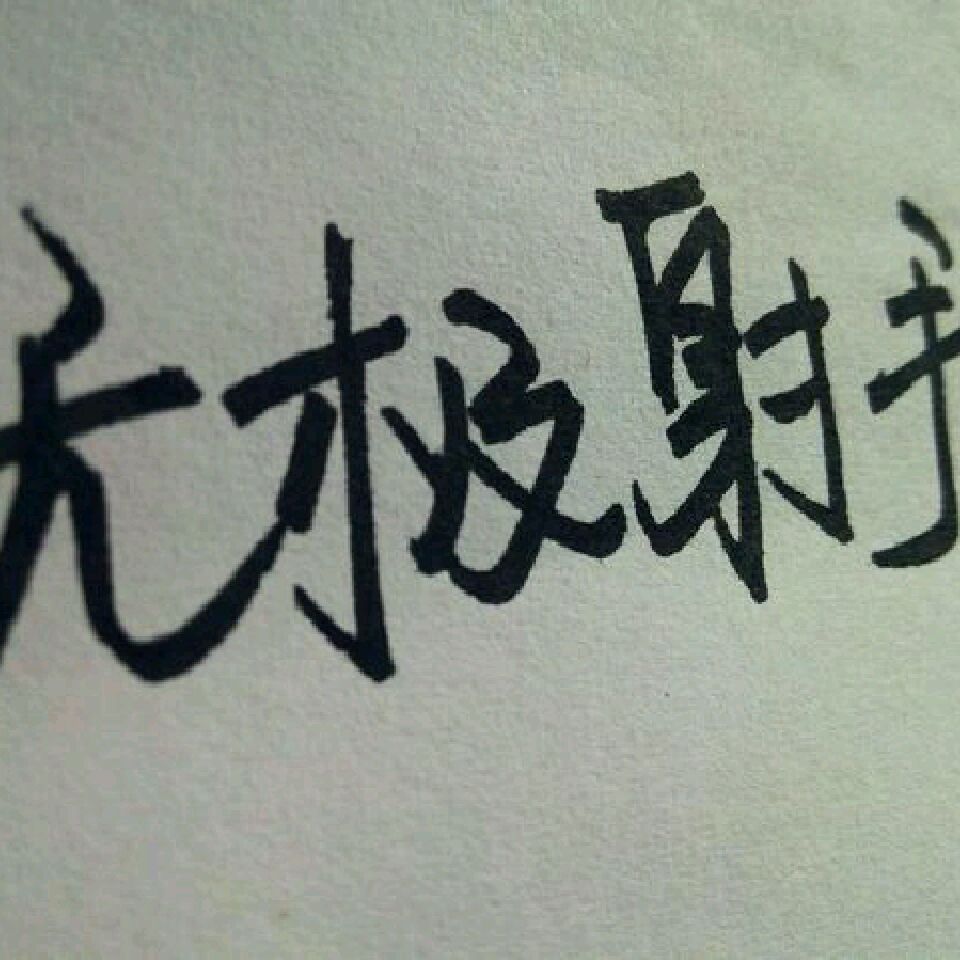 无极射手